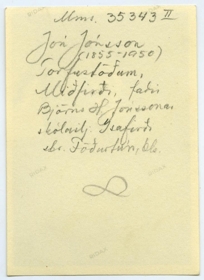 Mms. 35343 II
Jón Jónsson
(1855-1950)
Torfustöðum,
Miðfirði, faðir
Björns H. Jónssonar
skólastj. Ísafirði
sbr. Föðurtún, bls.